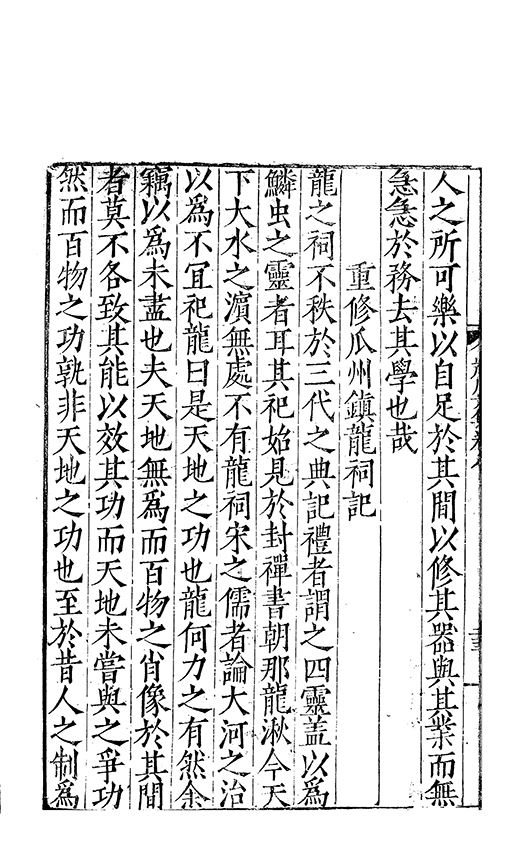 人之所可樂以自足於其間以修其器與其業而無
急急於務去其學也哉
重修瓜州鎮龍祠記
龍之祠不秩於三代之典記禮者謂之四靈盖以爲
鱗虫之靈者耳其祀始見於封禪書朝那龍湫今天
下大水之濵無處不有龍祠宋之儒者論大河之治
以爲不冝祀龍曰是天地之功也龍何力之有然余
竊以爲未盡也夫天地無爲而百物之肖像於其間
者莫不各致其能以效其功而天地未嘗與之爭功
然而百物之功孰非天地之功也至於昔人之制爲